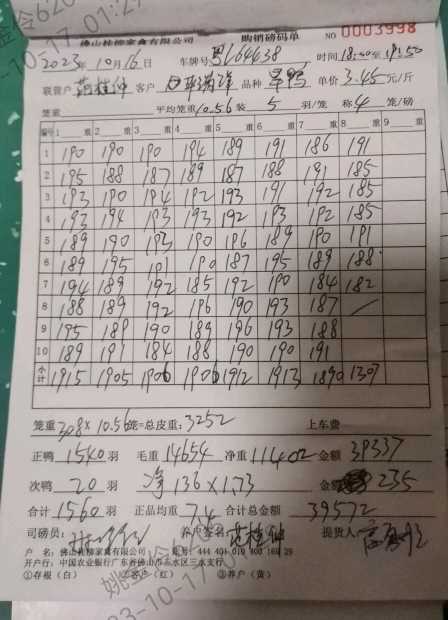 佛山桂柳家禽有限公司 购销磅码单 NO 0003998
2023年10月16日 车牌号 粤L64438 时间18:40至19:50
联营户 范桂钟 客户 品种 单价3.45元/斤
笼重 平均笼重10.56装 5 羽/笼 称 4 笼/磅
编号 1 重 2 重 3 重 4 重 5 重 6 重 7 重 8 重 9 重
1 190 190 190 194 189 191 186 191
2 195 188 187 189 187 188 191 185
3 193 190 194 192 193 191 192 185
4 193 194 193 193 192 193 192 185
5 189 190 193 190 196 189 190 191
6 189 195 191 190 187 195 189 188
7 194 189 192 185 192 190 184 182
8 188 189 192 196 190 193 187 /
9 195 189 190 189 196 193 188
10 189 191 184 188 190 190 191
小计 1915 1905 1906 1906 1912 1913 1890 1307
笼重308×10.56笼=总皮重:3252 上车费
正鸭 1540 羽 毛重 14654 净重 11402 金额 39337
次鸭 20 羽 净 136×1.73 金额 235
合计 1560 羽 正品均重 7.4 合计总金额 39572
司磅员: 养户签名: 范桂钟 提货人:
户 名: 佛山桂柳家禽有限公司 账号:
开户行: 中国农业银行广东省佛山市三水区三水支行
①存根(白) ②客户(红) ③养户(黄)